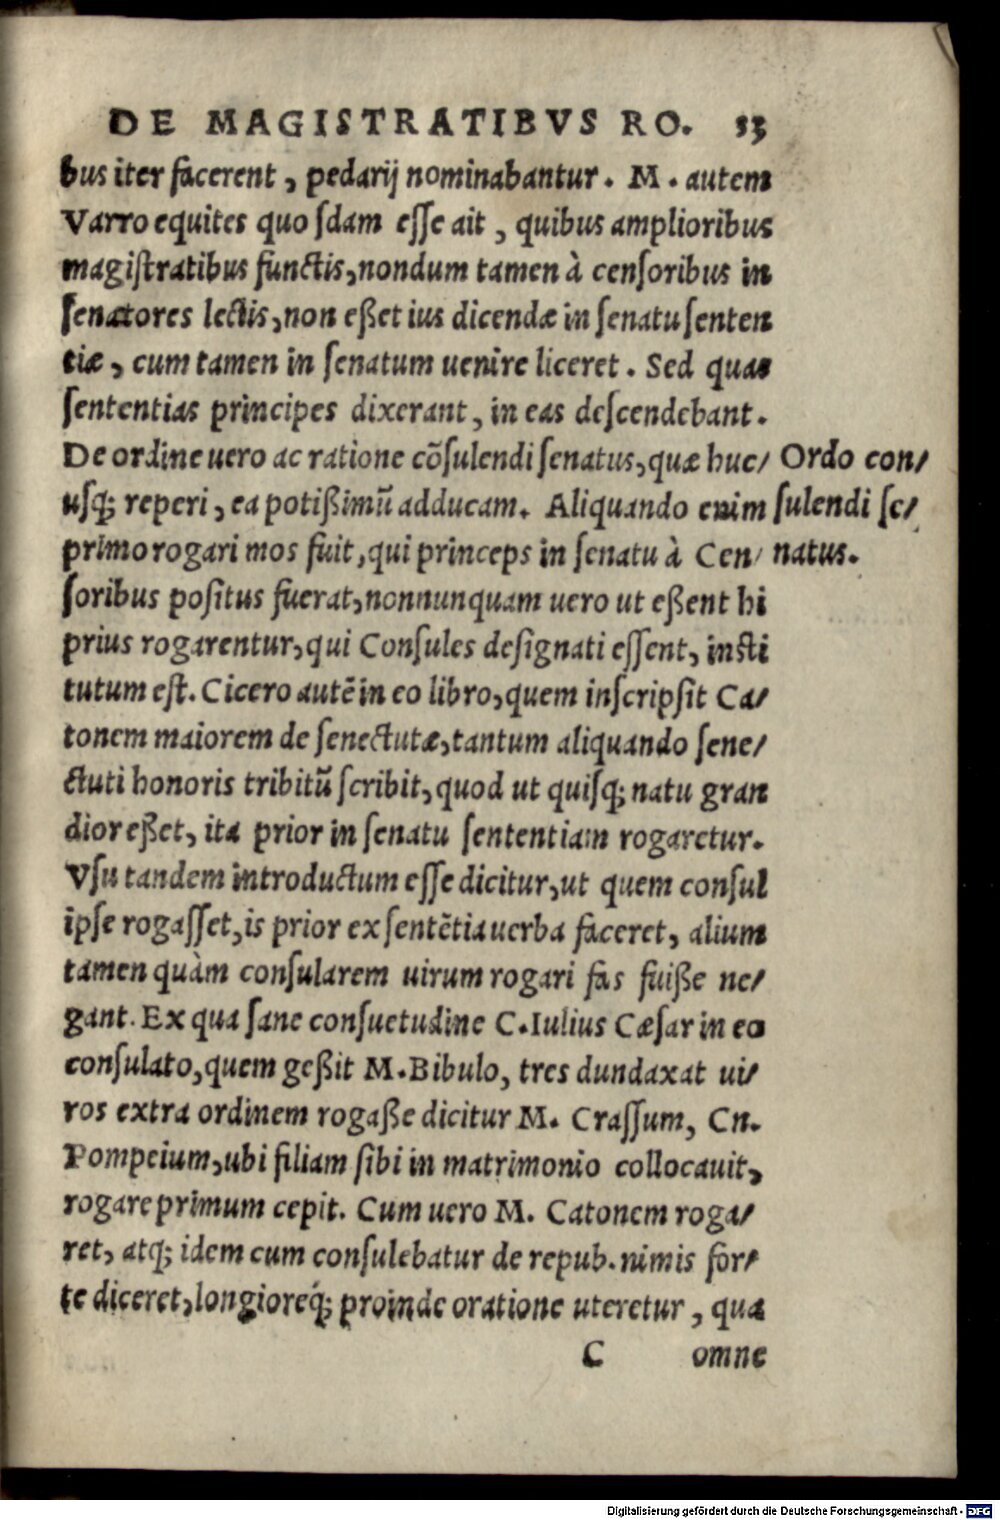 DE MAGISTRATIBVS RO. 33
bus iter facerent, pedarij nominabantur. M. autem
Varro equites quo ſdam eſſe ait, quibus amplioribus
magiſtratibus functis, nondum tamen à cenſoribus in
ſenatores lectis, non eßet ius dicendæ in ſenatu ſenten
tiæ, cum tamen in ſenatum uenire liceret. Sed quas
ſententias principes dixerant, in eas deſcendebant.
De ordine uero ac ratione cõſulendi ſenatus, quæ huc/
uſq; reperi, ea potißimũ adducam. Aliquando enim
primo rogari mos fuit, qui princeps in ſenatu à Cen/
ſoribus poſitus fuerat, nonnunquam uero ut eßent hi
prius rogarentur, qui Conſules deſignati eſſent, inſti
tutum eſt. Cicero autẽ in eo libro, quem inſcripſit Ca/
tonem maiorem de ſenectutæ, tantum aliquando ſene/
ctuti honoris tribitũ ſcribit, quod ut quiſq; natu gran
dior eßet, ita prior in ſenatu ſententiam rogaretur.
Vſu tandem introductum eſſe dicitur, ut quem conſul
ipſe rogaſſet, is prior ex ſentẽtia uerba faceret, alium
tamen quàm conſularem uirum rogari fas fuiße ne/
gant. Ex qua ſane conſuetudine C. Iulius Cæſar in eo
conſulato, quem geßit M. Bibulo, tres dundaxat ui/
ros extra ordinem rogaße dicitur M. Craſſum, Cn.
Pompeium, ubi filiam ſibi in matrimonio collocauit,
rogare primum cepit. Cum uero M. Catonem roga/
ret, atq; idem cum conſulebatur de repub. nimis for/
te diceret, longioreq́; proinde oratione uteretur, qua
C omne
Ordo con/
ſulendi ſe/
natus.
Digitalisierung gefördert durch die Deutsche Forschungsgemeinschaft - DFG